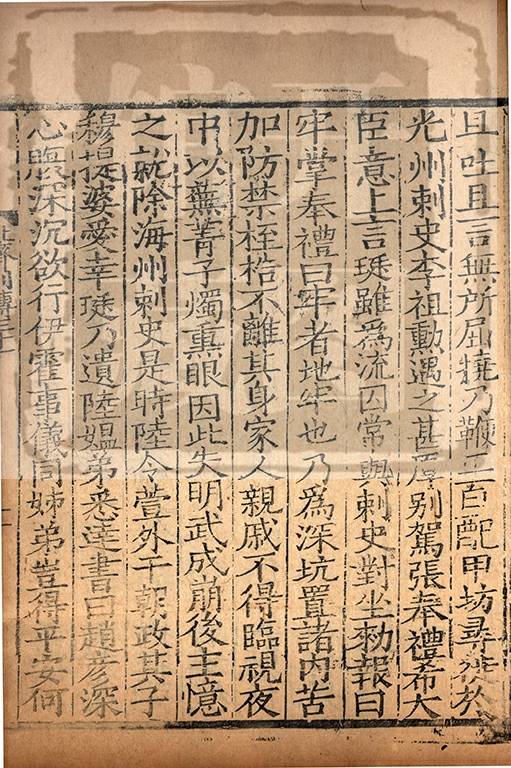 且吐且言無所屈撓乃鞭二百配甲坊尋徙於
光州刺史李祖勳遇之甚厚别駕張奉禮希大
臣意上言珽雖爲流囚常與刺史對坐勑報曰
牢掌奉禮曰牢者地牢也乃爲深坑置諸内苦
加防禁桎梏不離其身家人親戚不得臨視夜
中以蕪菁子燭熏眼因此失明武成崩後主憶
之就除海州刺史是時陸令萱外干朝政其子
穆提婆愛幸珽乃遺陸媪弟悉達書曰趙彦深
心腹深沉欲行伊霍事儀同姊弟豈得平安何